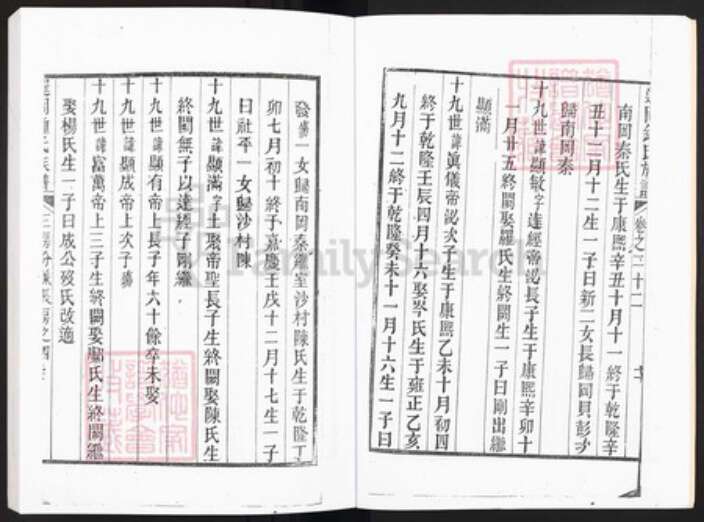 南岡秦氏生于康熙辛丑十月十一終于乾隆辛
丑十二月十二生一子曰新二女長歸岡貝彭次
歸南岡秦
十九世諱顯敏字達經帝認長子生于康熙辛卯十
一月廿五終闕娶羅氏生終闕生一子曰剛出繼
顯滿
十九世諱眞儀帝認次子生于康熙乙未十月初四
終于乾隆壬辰四月十六娶岑氏生于雍正乙亥
九月十二終于乾隆癸未十一月十六生一子曰
發 一女歸南岡秦繼室沙村陳氏生于乾隆丁
卯七月初十終于嘉慶壬戌十二月十七生一子
曰社平一女歸沙村陳
十九世諱顯滿字上聚帝聖長子生終闕娶陳氏生
終闕無子以達經子剛繼
十九世諱顯有帝上長子年六十餘卒未娶
十九世諱顯成帝上次子
十九世諱富萬帝上三子生終闕娶 氏生終闕繼
娶楊氏生一子曰成公歿氏改適
卷之二十二
FamilySearch